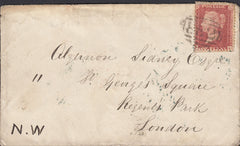 Algernon Sidney Esqre
" St George's Square
Regents Park
London
N.W